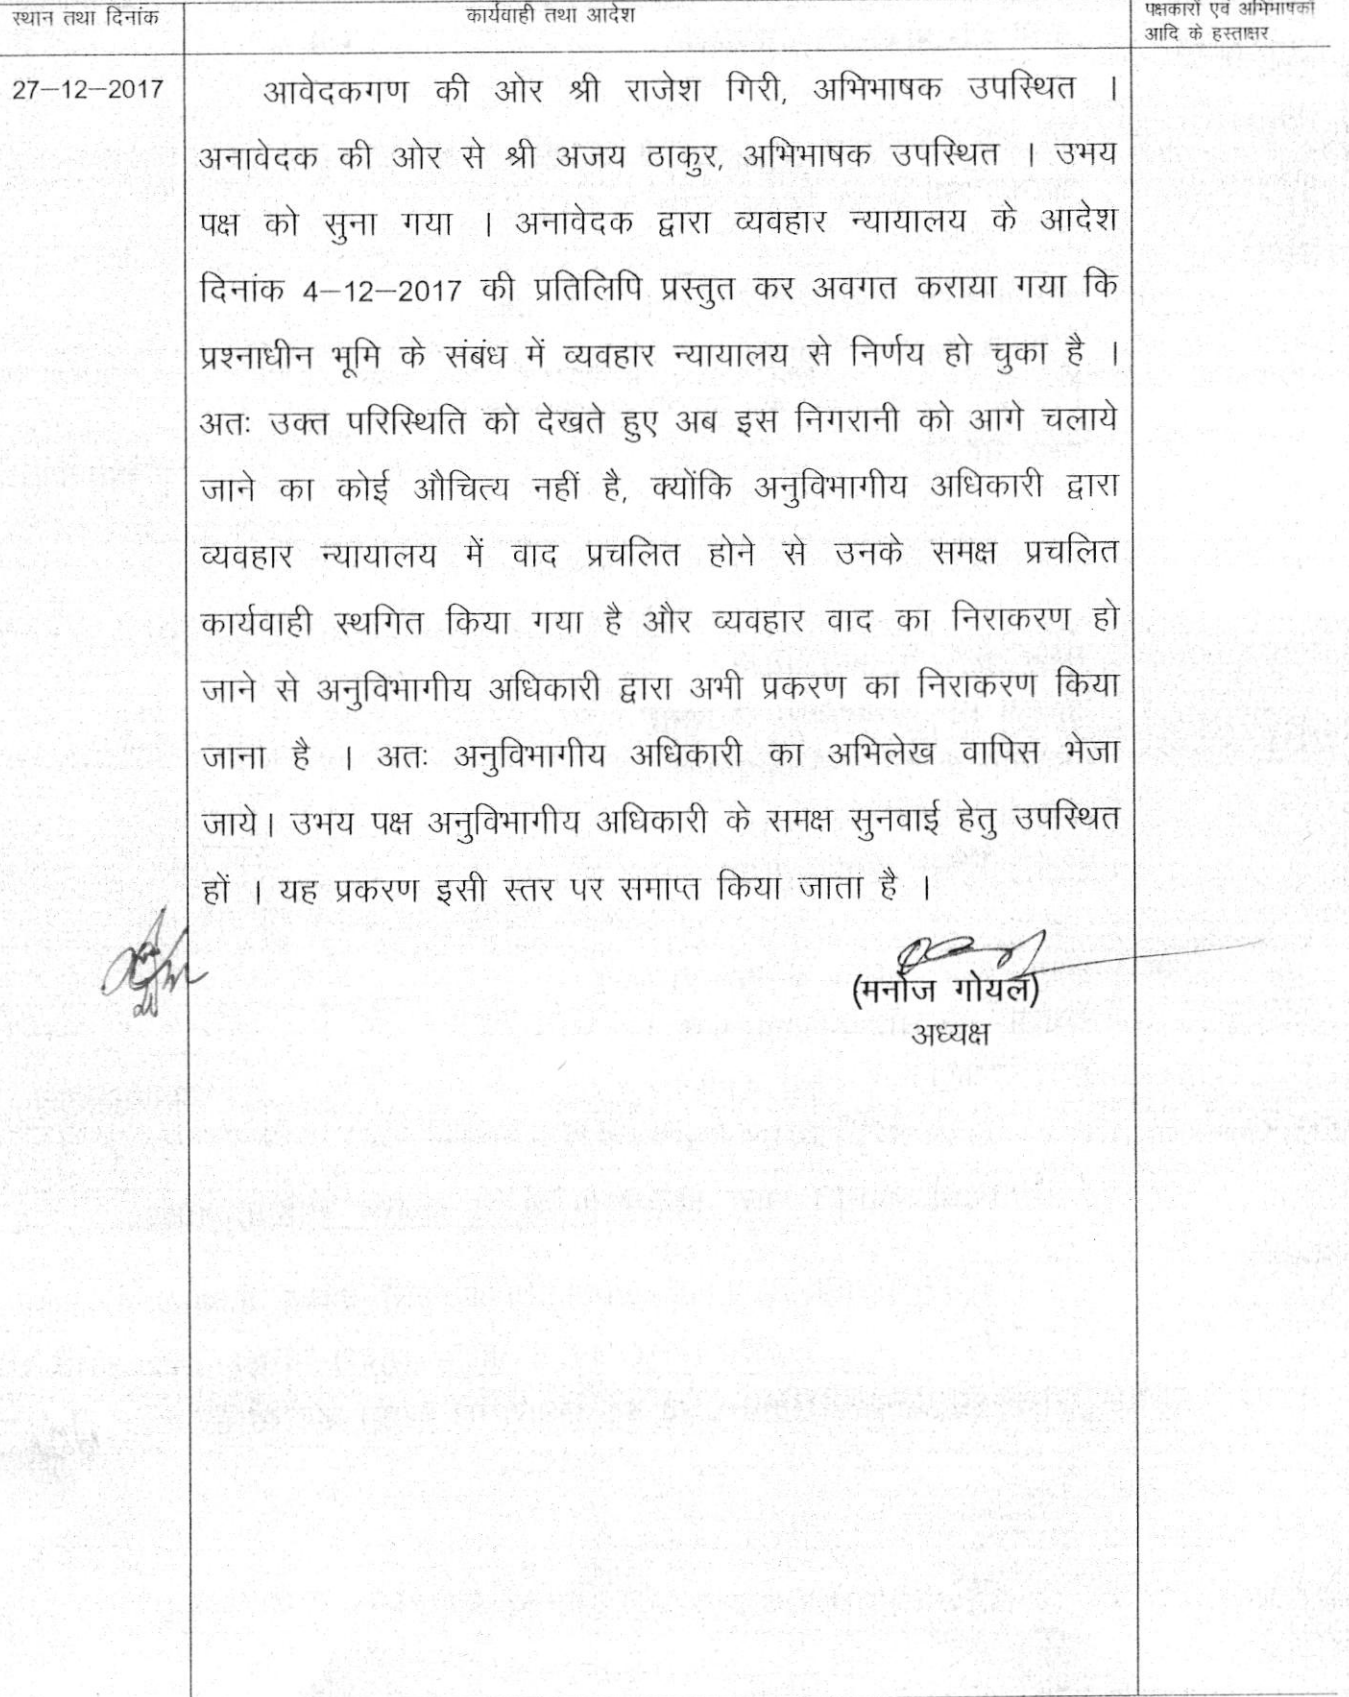 स्थान तथा दिनांक
कार्यवाही तथा आदेश
पक्षकारों एवं अभिभाषकों
आदि के हस्ताक्षर
27–12–2017
आवेदकगण की ओर श्री राजेश गिरी, अभिभाषक उपस्थित ।
अनावेदक की ओर से श्री अजय ठाकुर, अभिभाषक उपस्थित । उभय
पक्ष को सुना गया । अनावेदक द्वारा व्यवहार न्यायालय के आदेश
दिनांक 4–12–2017 की प्रतिलिपि प्रस्तुत कर अवगत कराया गया कि
प्रश्नाधीन भूमि के संबंध में व्यवहार न्यायालय से निर्णय हो चुका है ।
अतः उक्त परिस्थिति को देखते हुए अब इस निगरानी को आगे चलाये
जाने का कोई औचित्य नहीं है, क्योंकि अनुविभागीय अधिकारी द्वारा
व्यवहार न्यायालय में वाद प्रचलित होने से उनके समक्ष प्रचलित
कार्यवाही स्थगित किया गया है और व्यवहार वाद का निराकरण हो
जाने से अनुविभागीय अधिकारी द्वारा अभी प्रकरण का निराकरण किया
जाना है । अतः अनुविभागीय अधिकारी का अभिलेख वापिस भेजा
जाये। उभय पक्ष अनुविभागीय अधिकारी के समक्ष सुनवाई हेतु उपस्थित
हों । यह प्रकरण इसी स्तर पर समाप्त किया जाता है ।
(मनोज गोयल)
अध्यक्ष